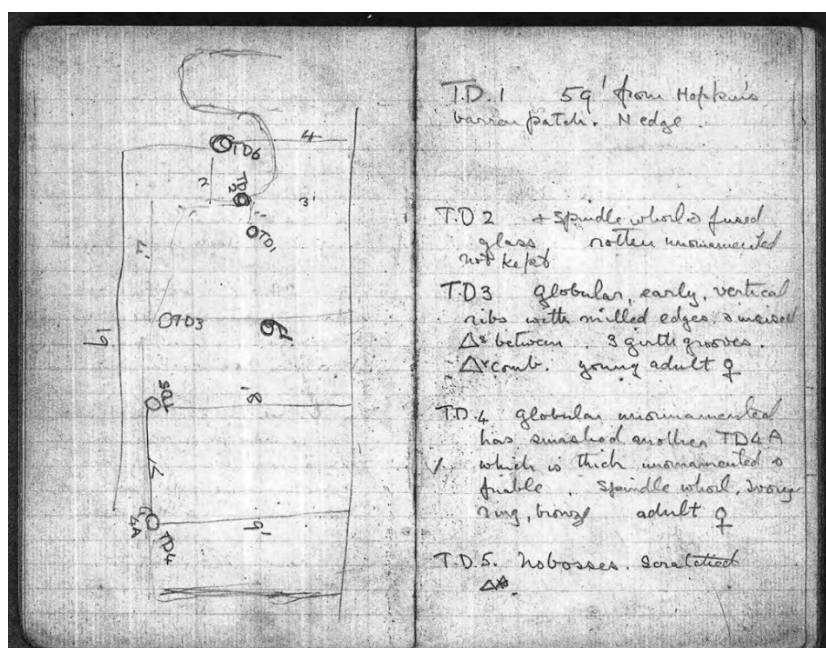 4
TD6
2
TD2
3'
TD1
7'
TD3
6'
19
TD5
8'
7
4A
TD4
9'
T.D.1 59' from Hopkin's
barren patch. N edge.
T.D 2 + Spindle whorl & fused
glass rotten unornamented
not kept
T.D3 globular, early, vertical
ribs with milled edges, incised
Δs between. 3 girth grooves.
Δr comb. young adult ♀
T.D.4 globular unornamented
has smashed another TD4A
which is thick unornamented &
friable. Spindle whorl, ivory
ring, bronze adult ♀
T.D.5. No bosses. Scratched